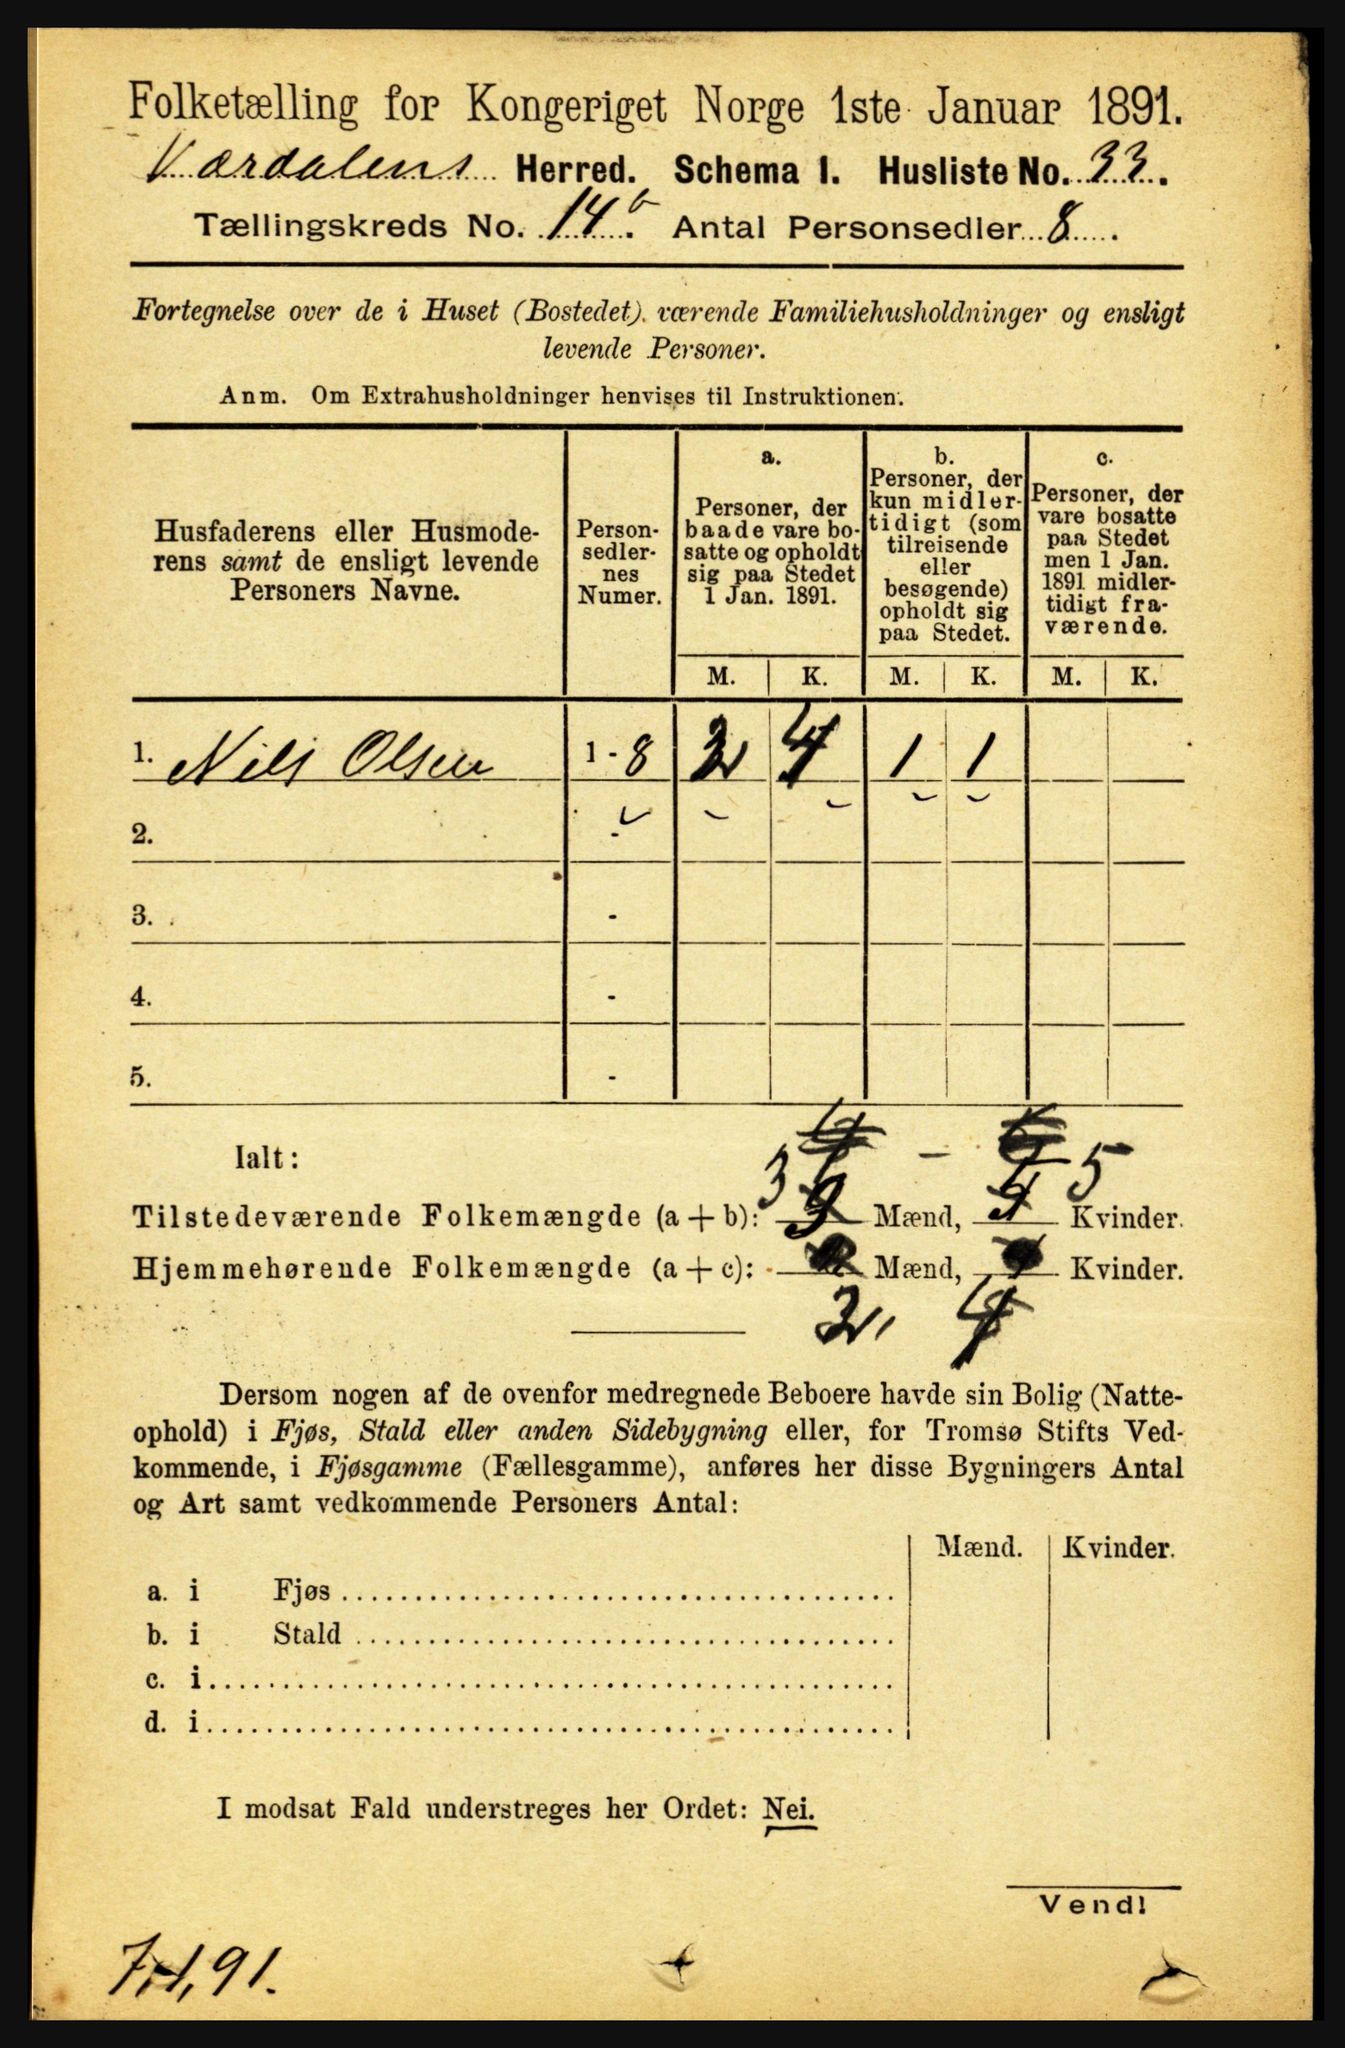 Folketælling for Kongeriget Norge 1ste Januar 1891.
Værdalens Herred. Schema I. Husliste No. 33.
Tællingskreds No. 14 b. Antal Personsedler 8.
Fortegnelse over de i Huset (Bostedet) værende Familiehusholdninger og ensligt
levende Personer.
Anm. Om Extrahusholdninger henvises til Instruktionen.
Husfaderens eller Husmoderens samt de ensligt levende Personers Navne.
Personsedlernes Numer.
a.
Personer, der baade vare bosatte og opholdt sig paa Stedet 1 Jan. 1891.
b.
Personer, der kun midlertidigt (som tilreisende eller besøgende) opholdt sig paa Stedet.
c.
Personer, der vare bosatte paa Stedet men 1 Jan. 1891 midlertidigt fraværende.
M. K. M. K. M. K.
1. Nils Olsen 1 - 8 2 4 1 1
2. -
3. -
4. -
5. -
Ialt: -
3 5
Tilstedeværende Folkemængde (a + b): Mænd, Kvinder.
Hjemmehørende Folkemængde (a + c): Mænd, Kvinder.
2, 4
Dersom nogen af de ovenfor medregnede Beboere havde sin Bolig (Natte-
ophold) i Fjøs, Stald eller anden Sidebygning eller, for Tromsø Stifts Ved-
kommende, i Fjøsgamme (Fællesgamme), anføres her disse Bygningers Antal
og Art samt vedkommende Personers Antal:
Mænd. Kvinder.
a. i Fjøs
b. i Stald
c. i
d. i
I modsat Fald understreges her Ordet: Nei.
Vend!
7,1,91.